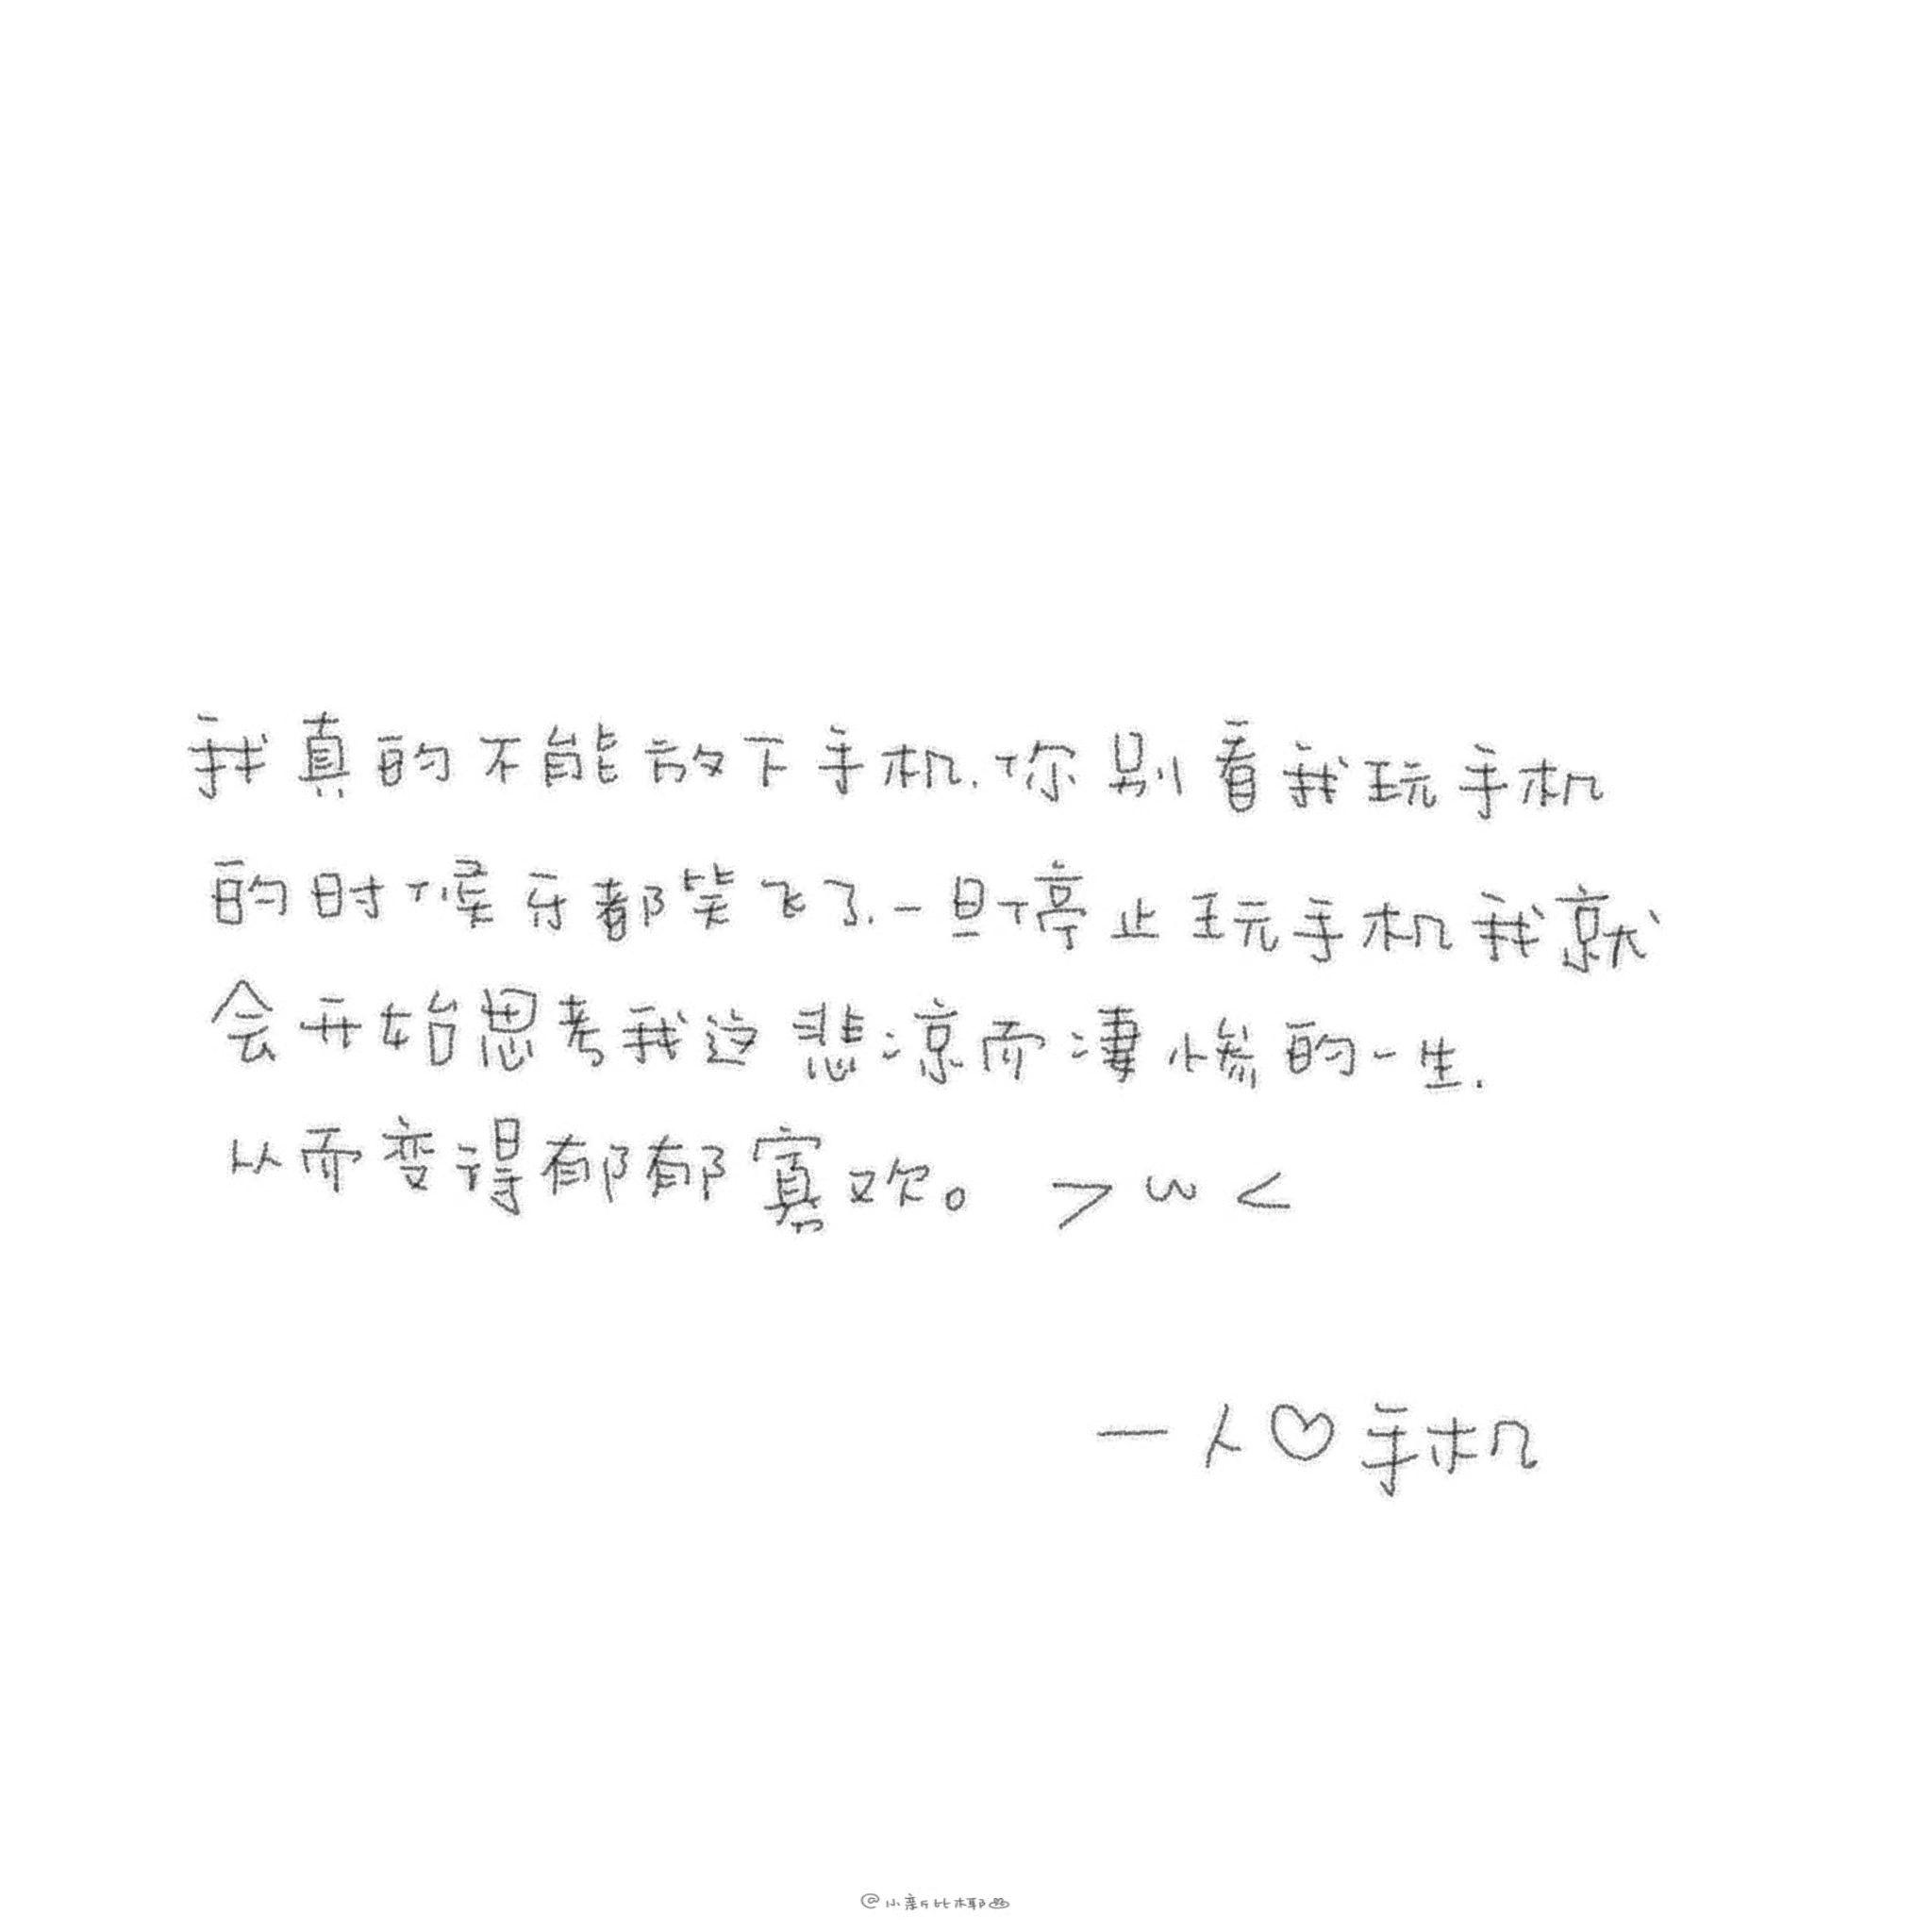 我真的不能放下手机.你别看我玩手机
的时候牙都笑飞了.一旦停止玩手机我就
会开始思考我这悲凉而凄惨的一生.
从而变得郁郁寡欢。 >ω<
一人♡手机
@小新比椰